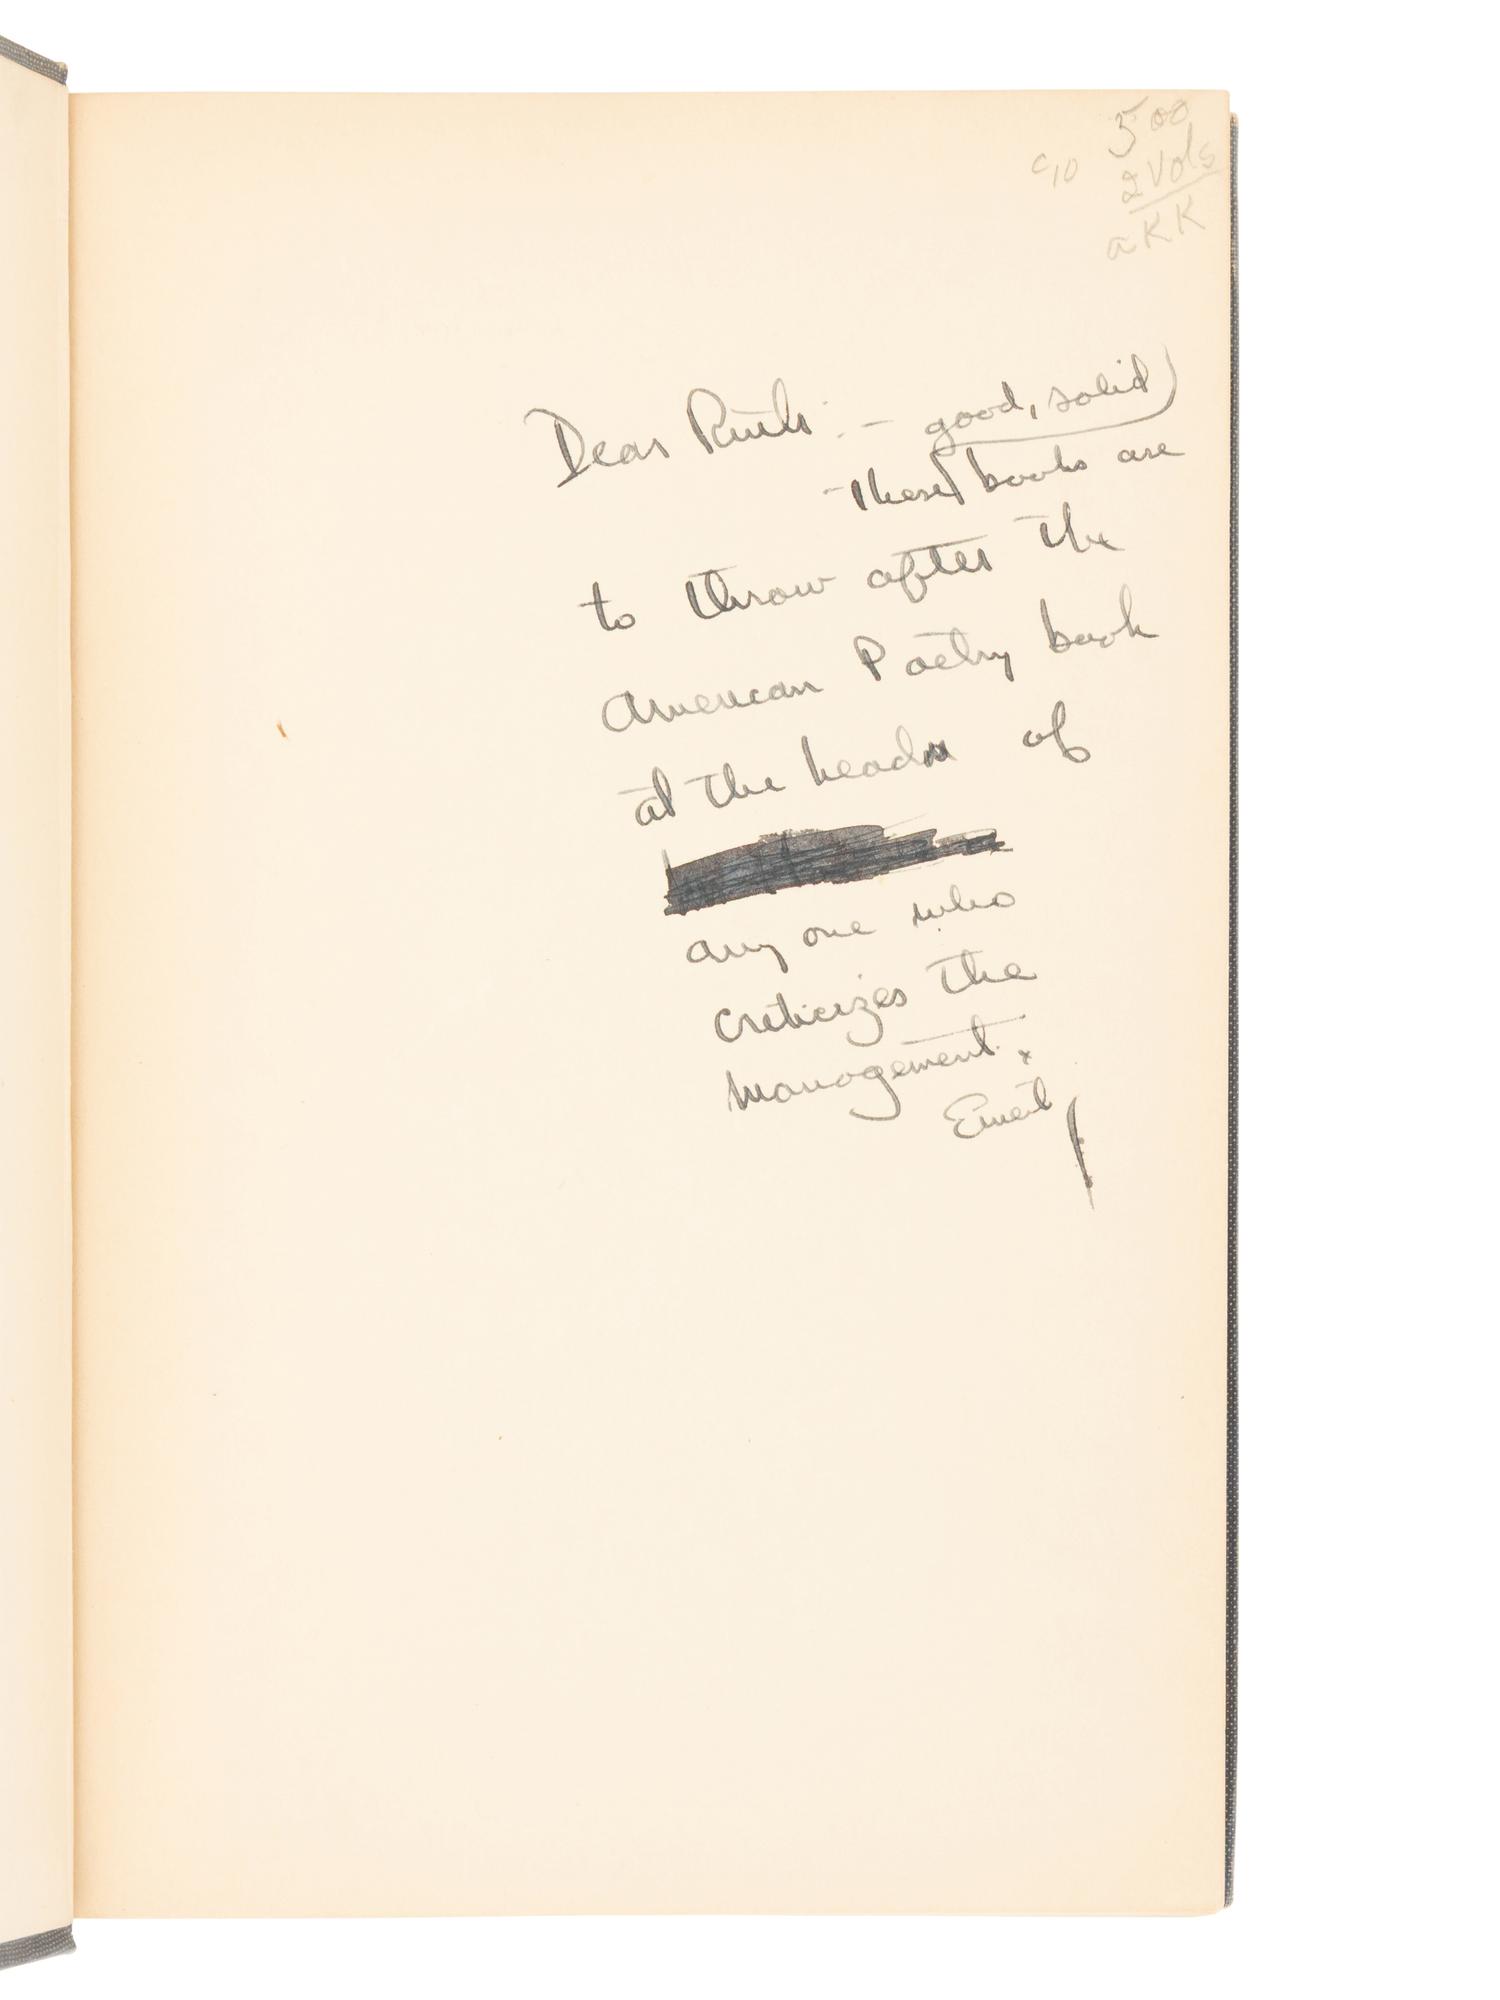 500
c10 2 Vols
aKK
Dear Ruth: — good, solid
- these books are
to throw after the
American Poetry book
at the heads of
any one who
criticizes the
management.
Ernest